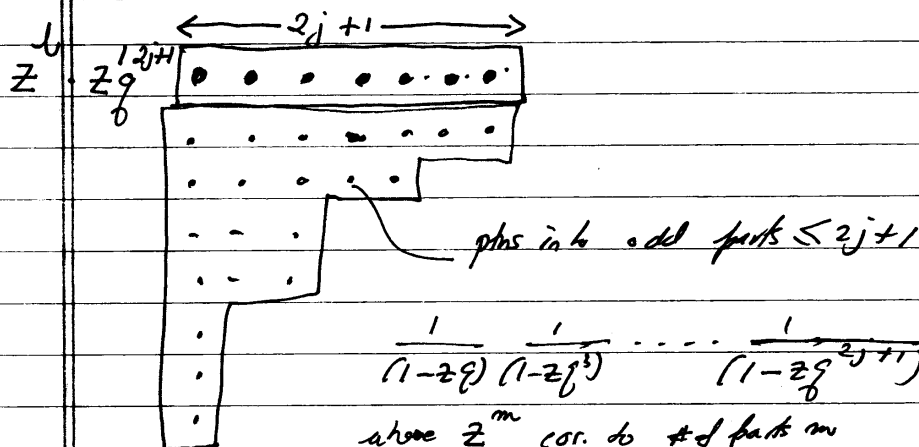 2j+1
z^l · zq^{1·2j+1}
ptns into odd parts ≤ 2j+1
1/(1-zq) 1/(1-zq^3) ..... 1/(1-zq^{2j+1})
where z^m cor. to # of parts m